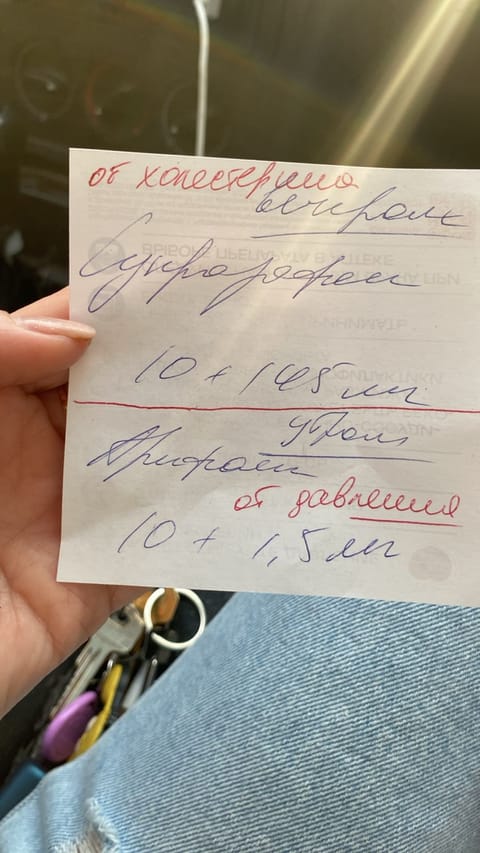 от холестерина
вечером
Супрозафен
10 + 145 мг
утром
Арифам
от давления
10 + 1,5 мг